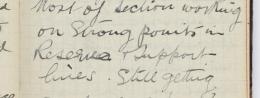 Most of section working
on Strong points in
Reserve & Support
lines. Still getting